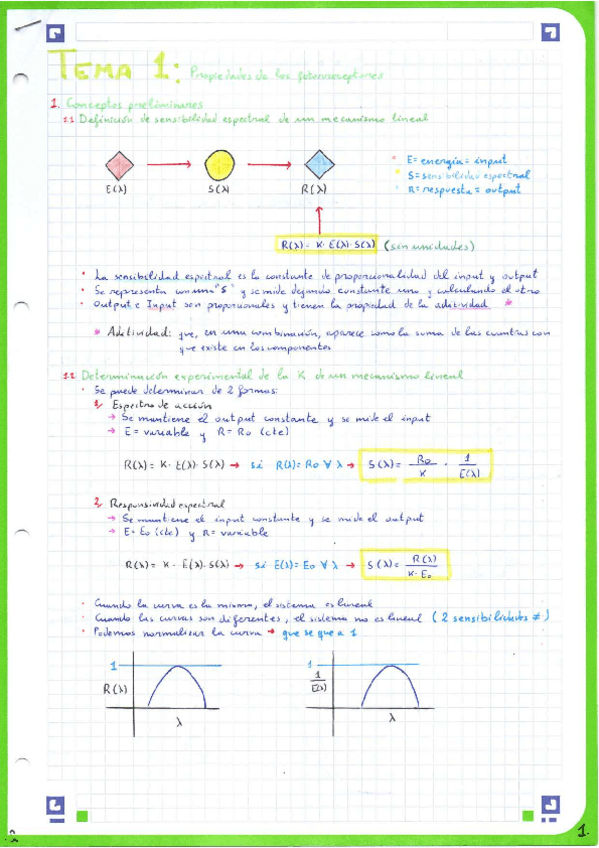 TEMA 1: Propiedades de los fotorreceptores
1. Conceptos preliminares
1.1 Definición de sensibilidad espectral de un mecanismo lineal
E(λ) S(λ) R(λ)
• E = energía = input
• S = sensibilidad espectral
• R = respuesta = output
R(λ) = K · E(λ) · S(λ) (sin unidades)
• La sensibilidad espectral es la constante de proporcionalidad del input y output
• Se representa con una "S" y se mide dejando constante uno y calculando el otro
• Output e Input son proporcionales y tienen la propiedad de la aditividad *
* Aditividad: que, en una combinación, aparece como la suma de las cuantías con
que existe en los componentes
1.2 Determinación experimental de la K de un mecanismo lineal
• Se puede determinar de 2 formas:
1) Espectro de acción
→ Se mantiene el output constante y se mide el input
→ E = variable y R = Ro (cte)
R(λ) = K · E(λ) · S(λ) → si R(λ) = Ro ∀ λ → S(λ) = Ro/K · 1/E(λ)
2) Responsividad espectral
→ Se mantiene el input constante y se mide el output
→ E = Eo (cte) y R = variable
R(λ) = K · E(λ) · S(λ) → si E(λ) = Eo ∀ λ → S(λ) = R(λ)/K · Eo
• Cuando la curva es la misma, el sistema es lineal
• Cuando las curvas son diferentes, el sistema no es lineal (2 sensibilidades ≠)
• Podemos normalizar la curva → que se que a 1
1 1
R(λ) 1/E(λ)
λ λ
1.